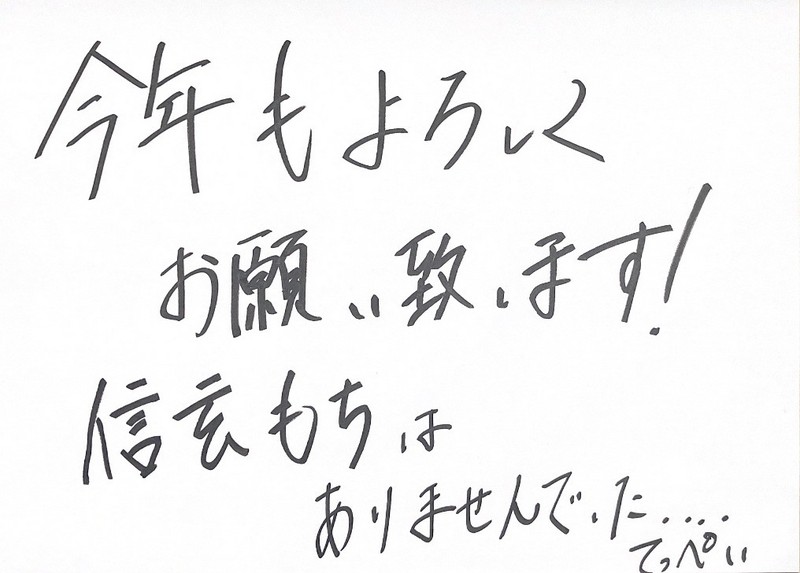 今年もよろしく
お願い致します!
信玄もちは
ありませんでした....
てっぺい